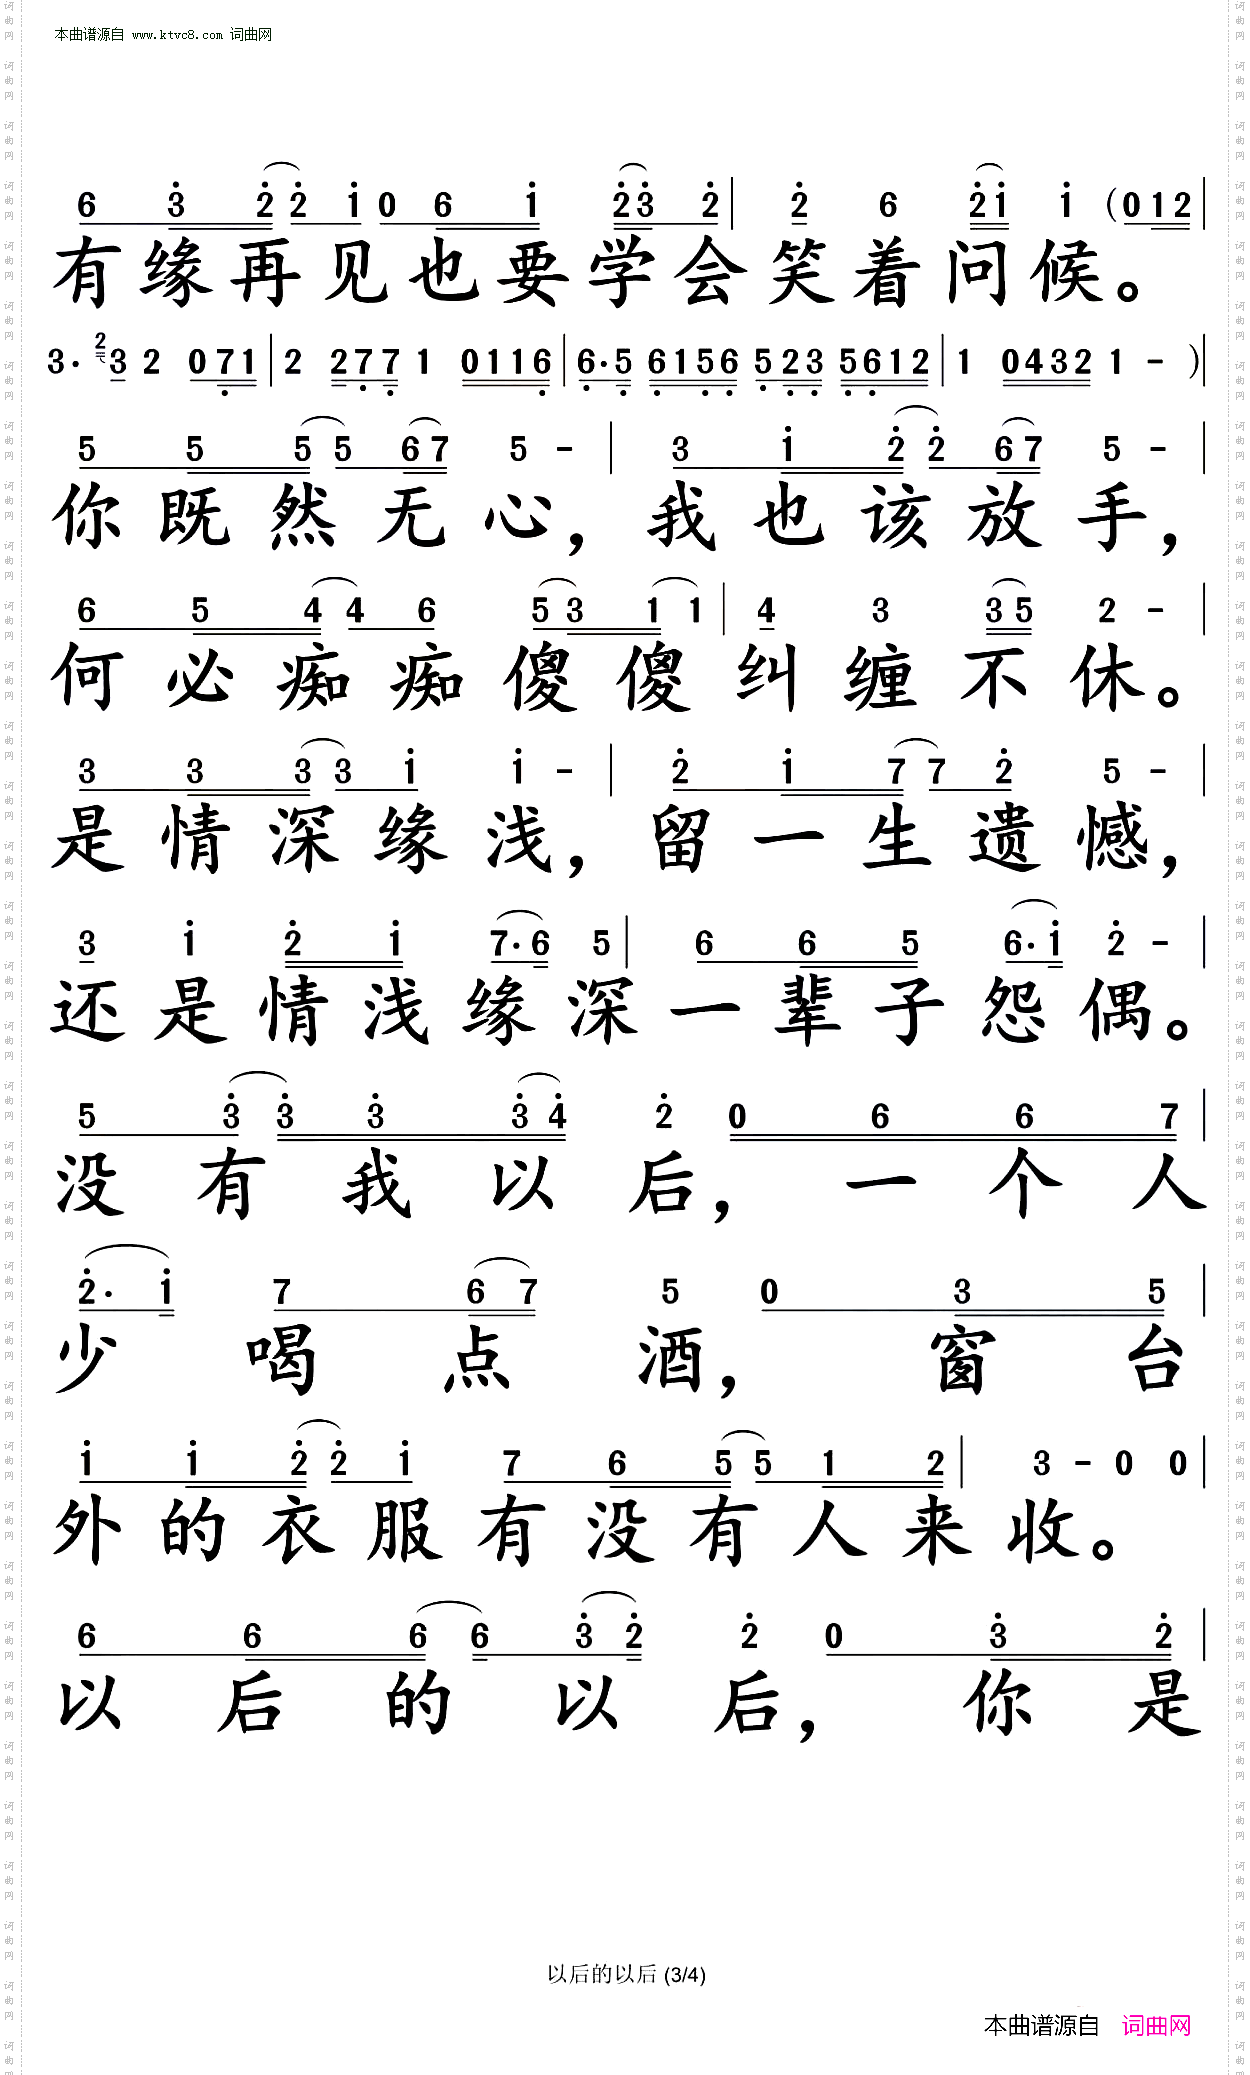 本曲谱源自 www.ktvc8.com 词曲网
6 3 2 2 1 0 6 1 2 3 2 | 2 6 2 1 1 (0 1 2 |
有缘再见也要学会笑着问候。
3· 2 3 2 0 7 1 | 2 2 7 7 1 0 1 1 6 | 6· 5 6 1 5 6 5 2 3 5 6 1 2 | 1 0 4 3 2 1 - ) |
5 5 5 5 6 7 5 - | 3 1 2 2 6 7 5 - |
你既然无心，我也该放手，
6 5 4 4 6 5 3 1 1 | 4 3 3 5 2 - |
何必痴痴傻傻纠缠不休。
3 3 3 3 1 1 - | 2 1 7 7 2 5 - |
是情深缘浅，留一生遗憾，
3 1 2 1 7· 6 5 | 6 6 5 6· 1 2 - |
还是情浅缘深一辈子怨偶。
5 3 3 3 3 4 2 0 6 6 7 |
没有我以后，一个人
2· 1 7 6 7 5 0 3 5 |
少喝点酒，窗台
1 1 2 2 1 7 6 5 5 1 2 | 3 - 0 0 |
外的衣服有没有人来收。
6 6 6 6 3 2 2 0 3 2 |
以后的以后，你是
以后的以后 (3/4)
本曲谱源自 词曲网